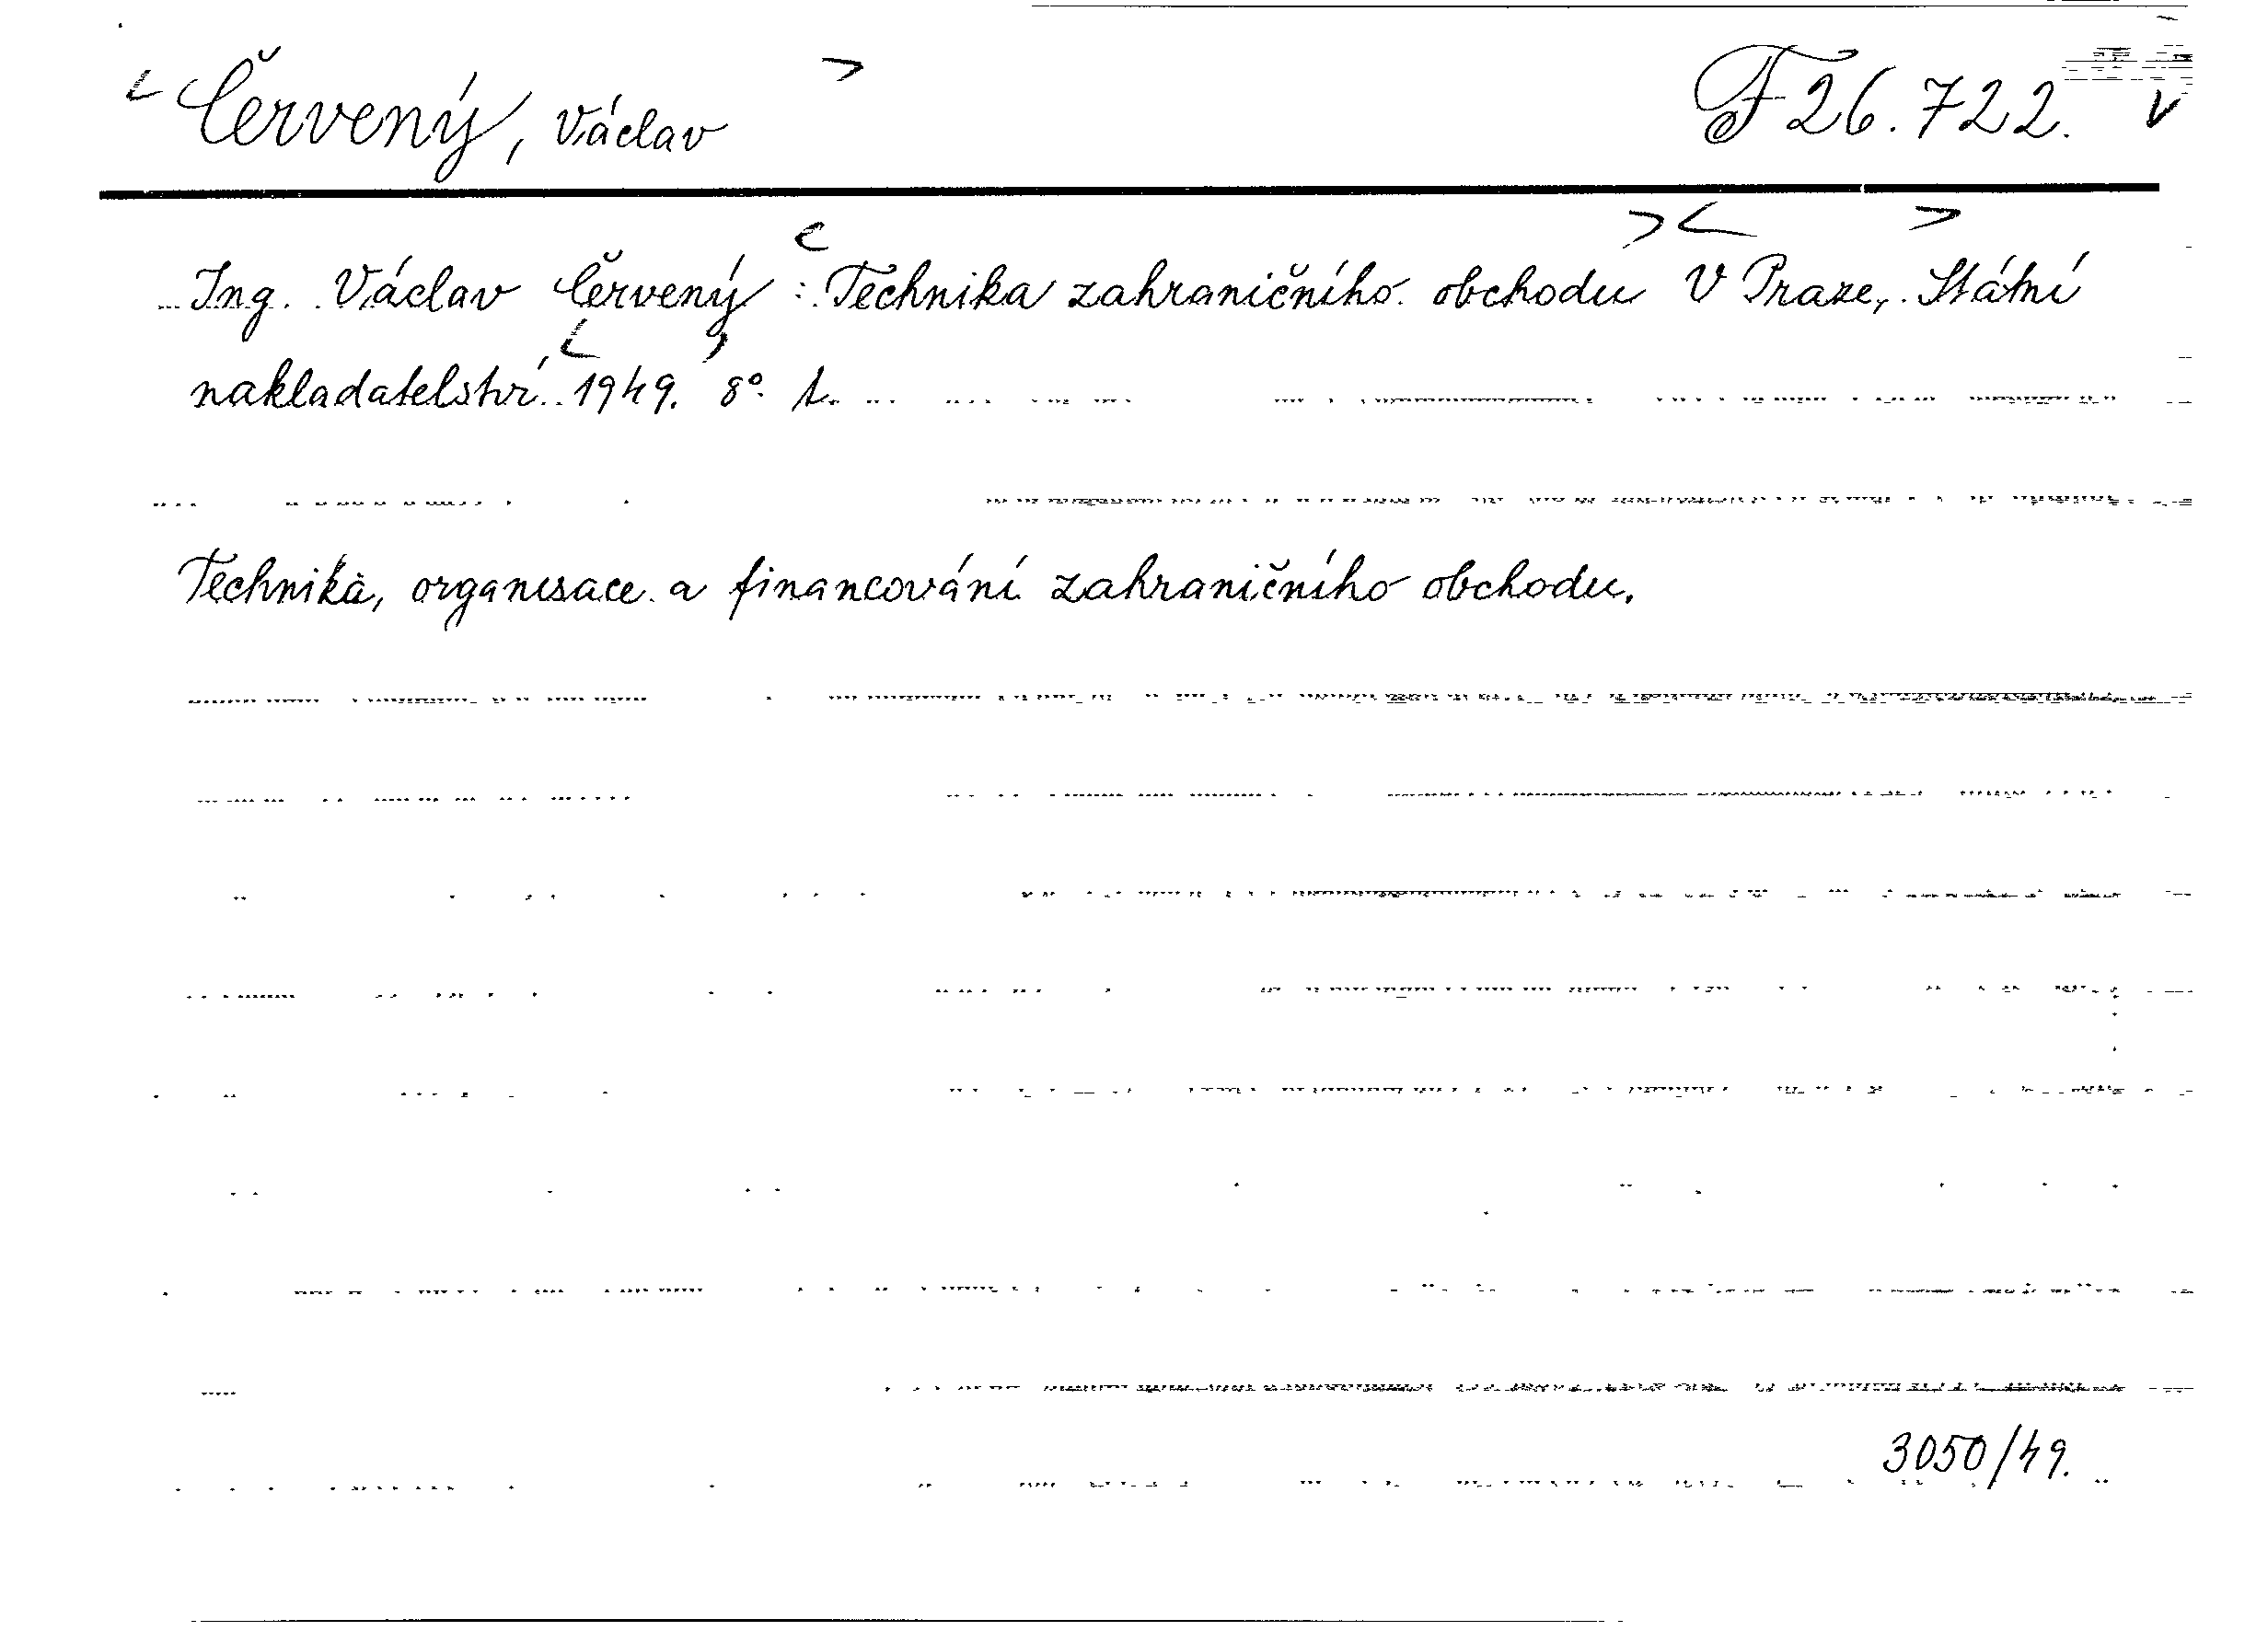 Červený, Václav F 26.722. v
Ing. Václav Červený : Technika zahraničního obchodu V Praze, Státní
nakladatelství 1949. 8°.
Technika, organisace a financování zahraničního obchodu.
3050/49.